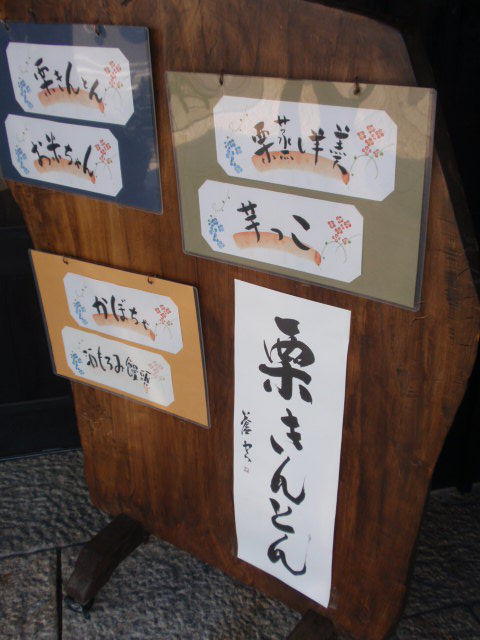 栗きんとん
お米ちゃん
栗蒸し羊羹
芋っこ
かぼちゃ
酒もろみ饅頭
栗きんとん